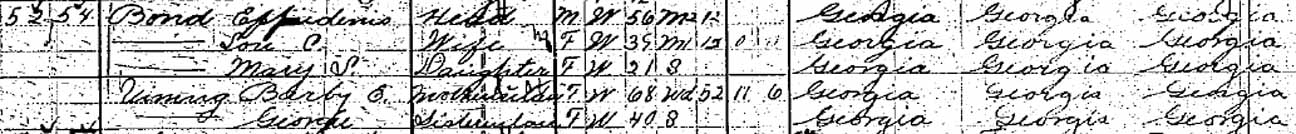 52 54 Bond Head M W 56 M2 12 Georgia Georgia Georgia
Lou C. Wife F W 39 M1 12 0 Georgia Georgia Georgia
Mary S. Daughter F W 21 S Georgia Georgia Georgia
Vining Barby E. Motherinlaw F W 68 Wd 52 11 6 Georgia Georgia Georgia
George Sisterinlaw F W 40 S Georgia Georgia Georgia